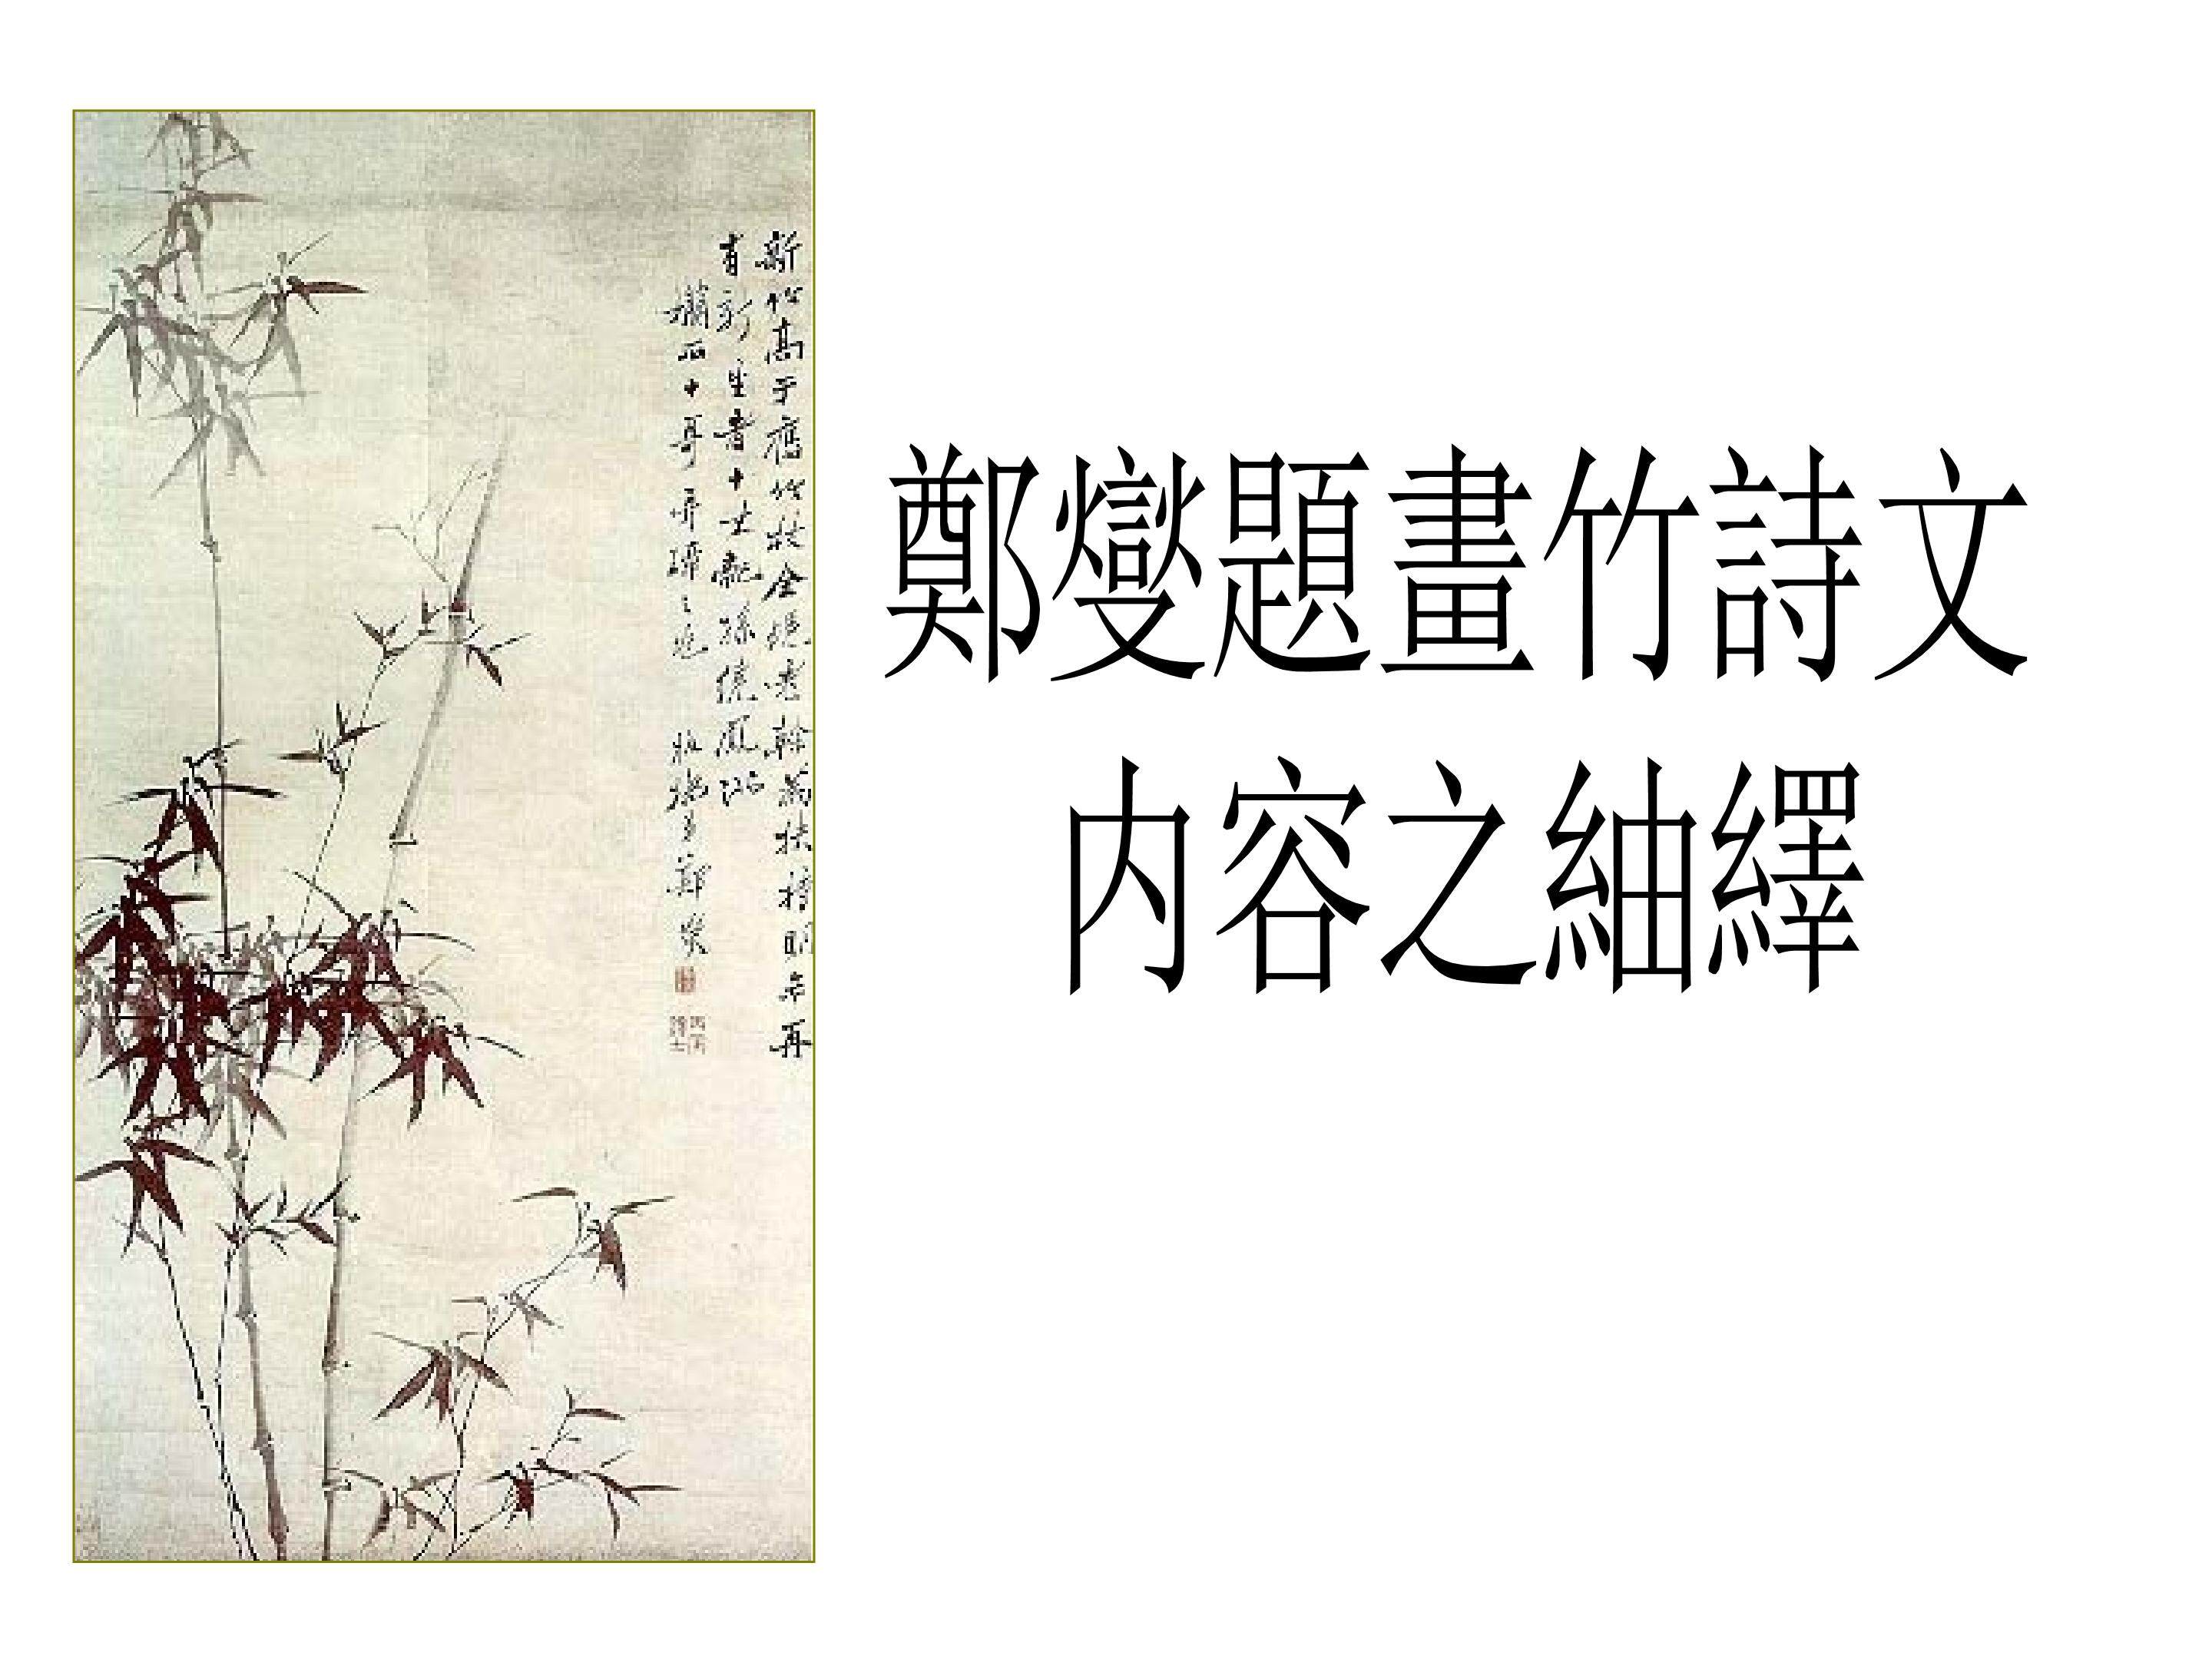 新竹高于舊竹枝全凭老幹為扶持明年再
有新生者十丈龍孫繞鳳池
哥弄璋之兆 板橋弟鄭燮
鄭燮題畫竹詩文
內容之紬繹